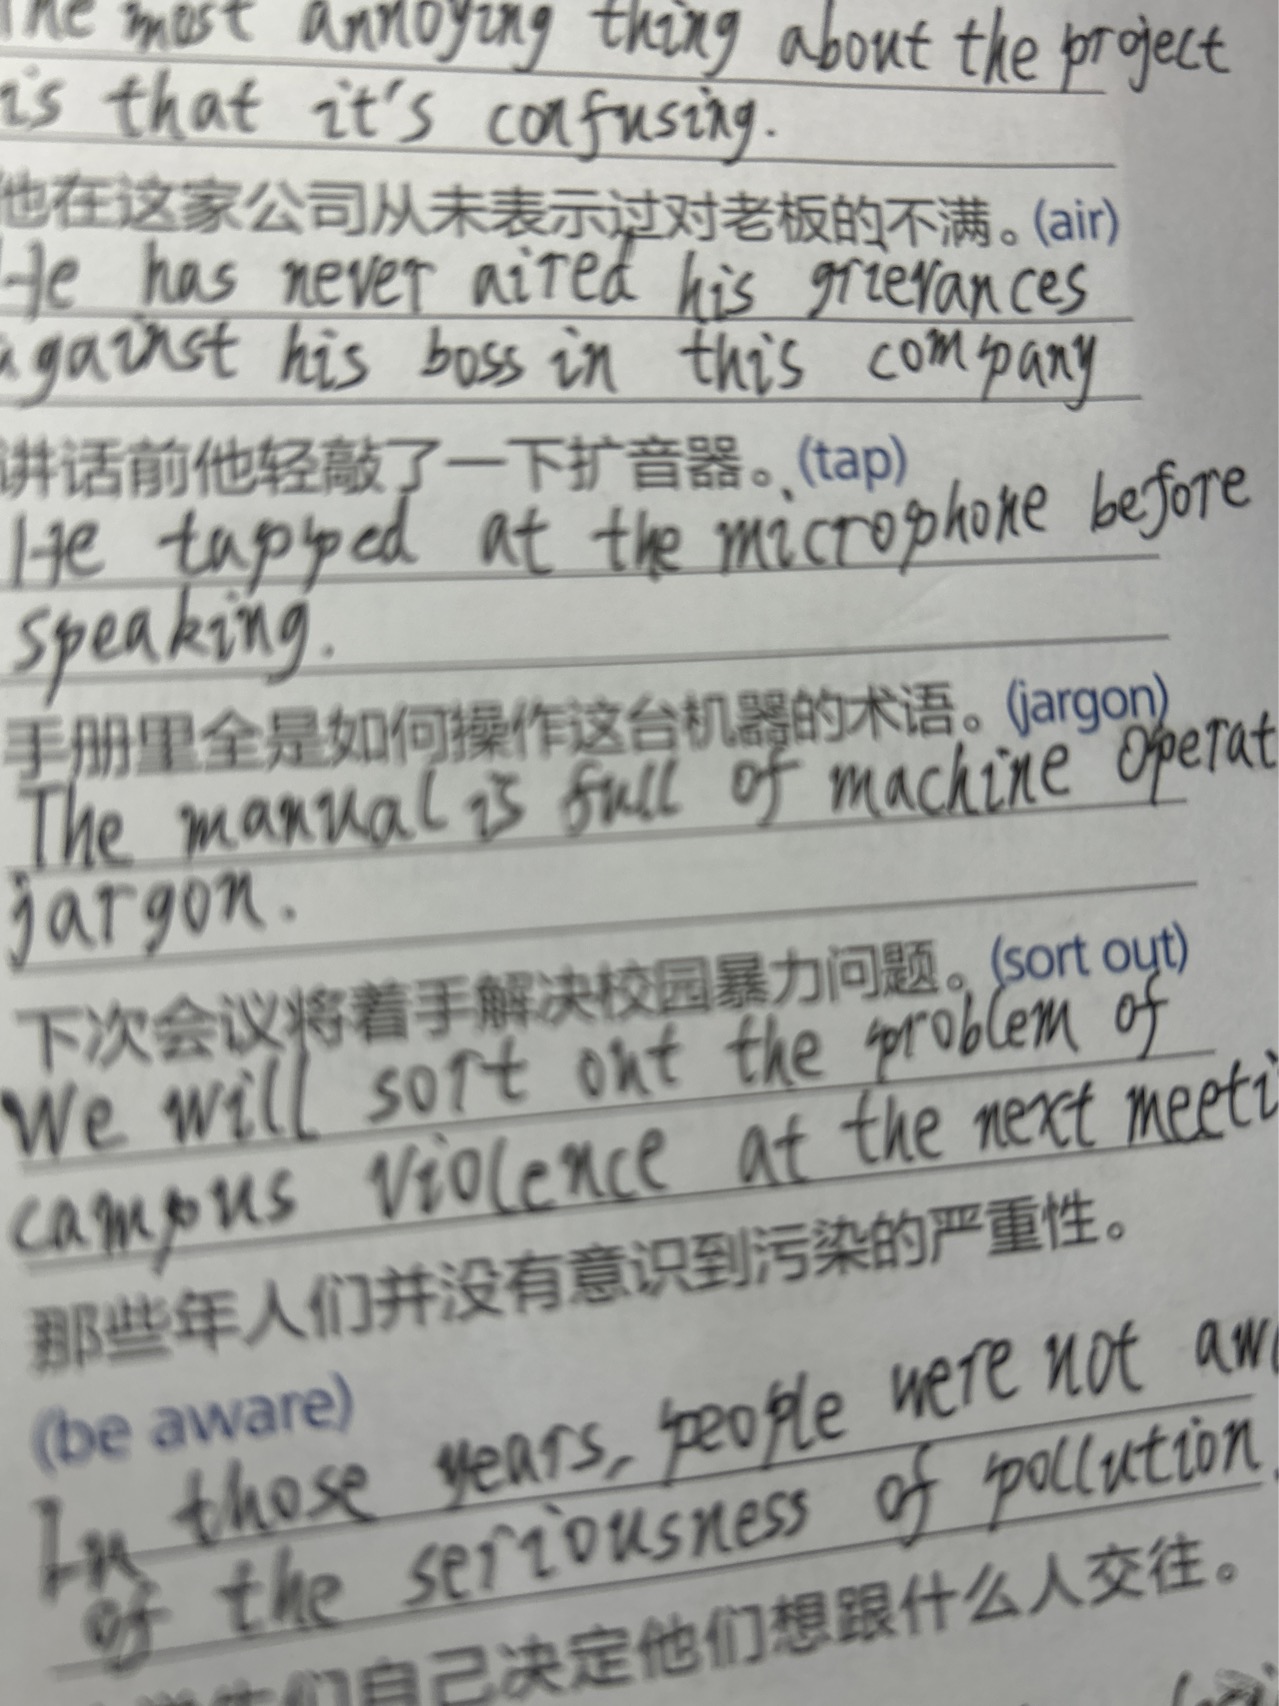 The most annoying thing about the project
is that it's confusing.
他在这家公司从未表示过对老板的不满。(air)
He has never aired his grievances
against his boss in this company
讲话前他轻敲了一下扩音器。(tap)
He tapped at the microphone before
speaking.
手册里全是如何操作这台机器的术语。(jargon)
The manual is full of machine operat
jargon.
下次会议将着手解决校园暴力问题。(sort out)
We will sort out the problem of
campus violence at the next meeti
那些年人们并没有意识到污染的严重性。
(be aware)
In those years, people were not aw
of the seriousness of pollution.
学生们自己决定他们想跟什么人交往。